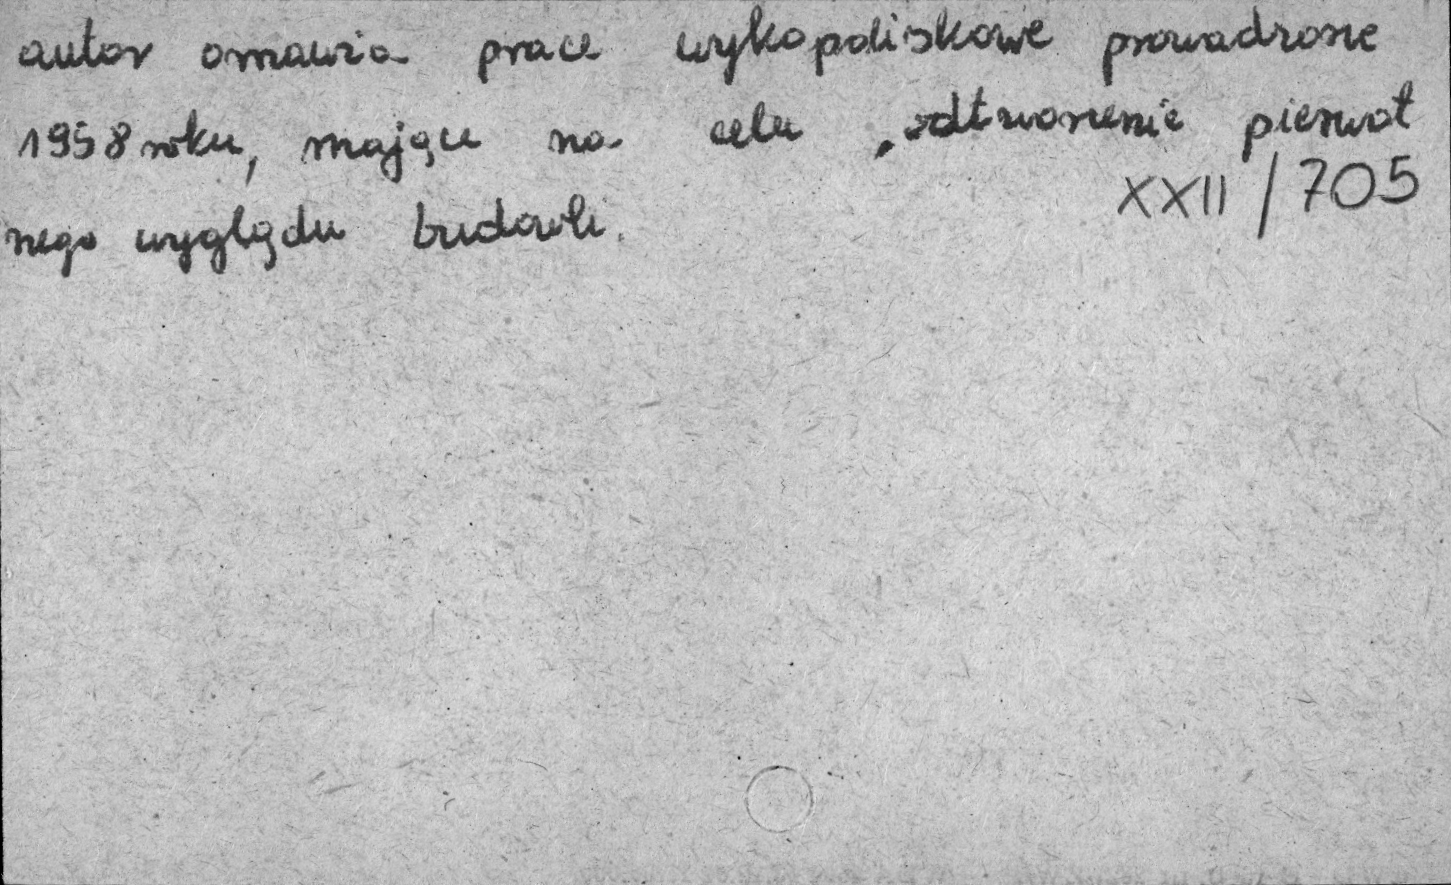 autor omawia prace wykopaliskowe prowadzone
1958 roku, mające na celu odtworzenie pierwot
XXII / 705
nego wyglądu budowli.